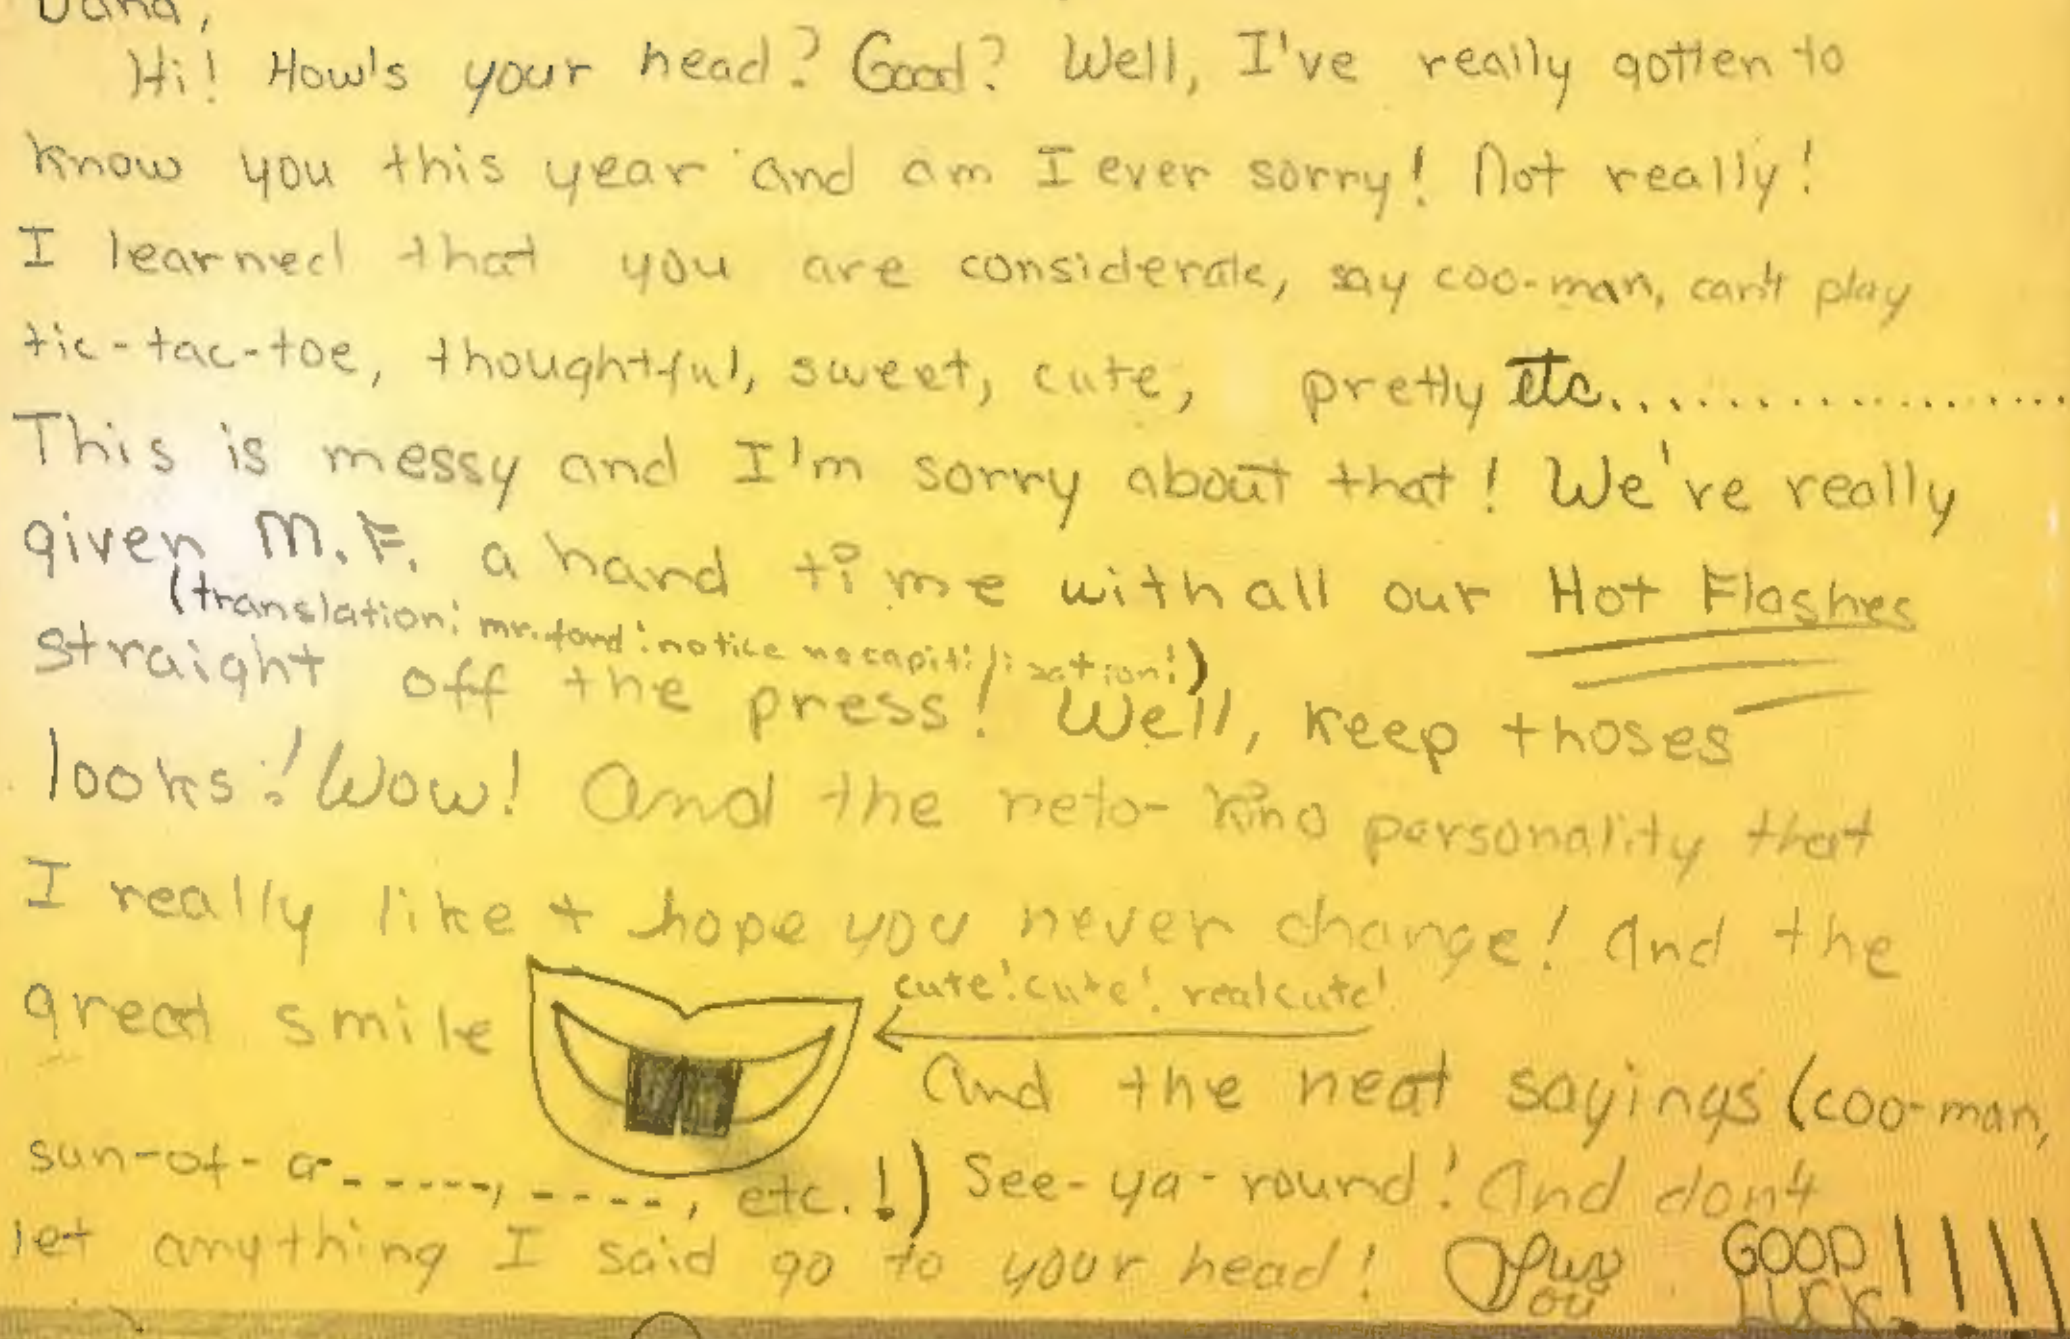 Dana,
Hi! How's your head? Good? Well, I've really gotten to
know you this year and am I ever sorry! Not really!
I learned that you are considerate, say coo-man, can't play
tic-tac-toe, thoughtful, sweet, cute, pretty etc....................
This is messy and I'm sorry about that! We've really
given M.F. a hard time with all our Hot Flashes
(translation: mr. ford! notice no capitilization!)
straight off the press! Well, keep thoses
looks! Wow! And the neto-kino personality that
I really like + hope you never change! And the
great smile
cute! cute! real cute!
And the neat sayings (coo-man,
sun-of-a-----, -----, etc.!) See-ya-round! And don't
let anything I said go to your head!
GOOD !!!!
LUCK